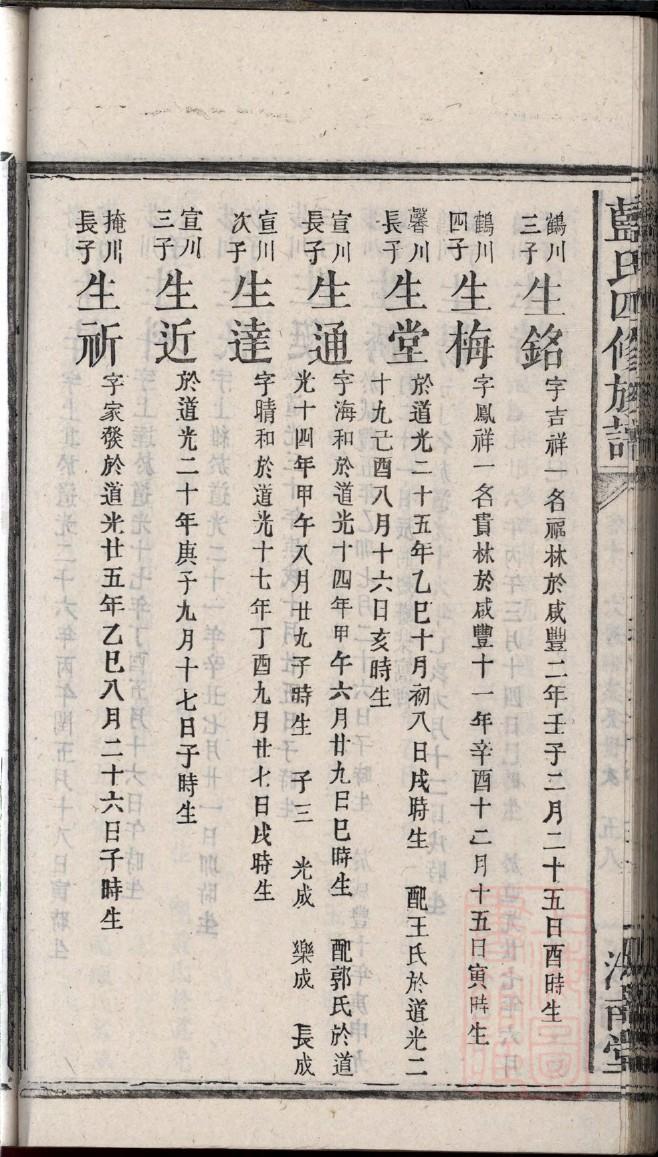 藍氏四修族譜
鶴川三子 生銘 字吉祥一名福林於咸豐二年壬子二月二十五日酉時生
鶴川四子 生梅 字鳳祥一名貴林於咸豐十一年辛酉十二月十五日寅時生
馨川長子 生堂 於道光二十五年乙巳十月初八日戌時生 配王氏於道光二
十九己酉八月十六日亥時生
宣川長子 生通 字海和於道光十四年甲午六月廿九日巳時生 配郭氏於道
光十四年甲午八月廿九子時生 子三 光成 樂成 長成
宣川次子 生達 字晴和於道光十七年丁酉九月廿七日戌時生
宣川三子 生近 於道光二十年庚子九月十七日子時生
掩川長子 生祈 字家發於道光廿五年乙巳八月二十六日子時生